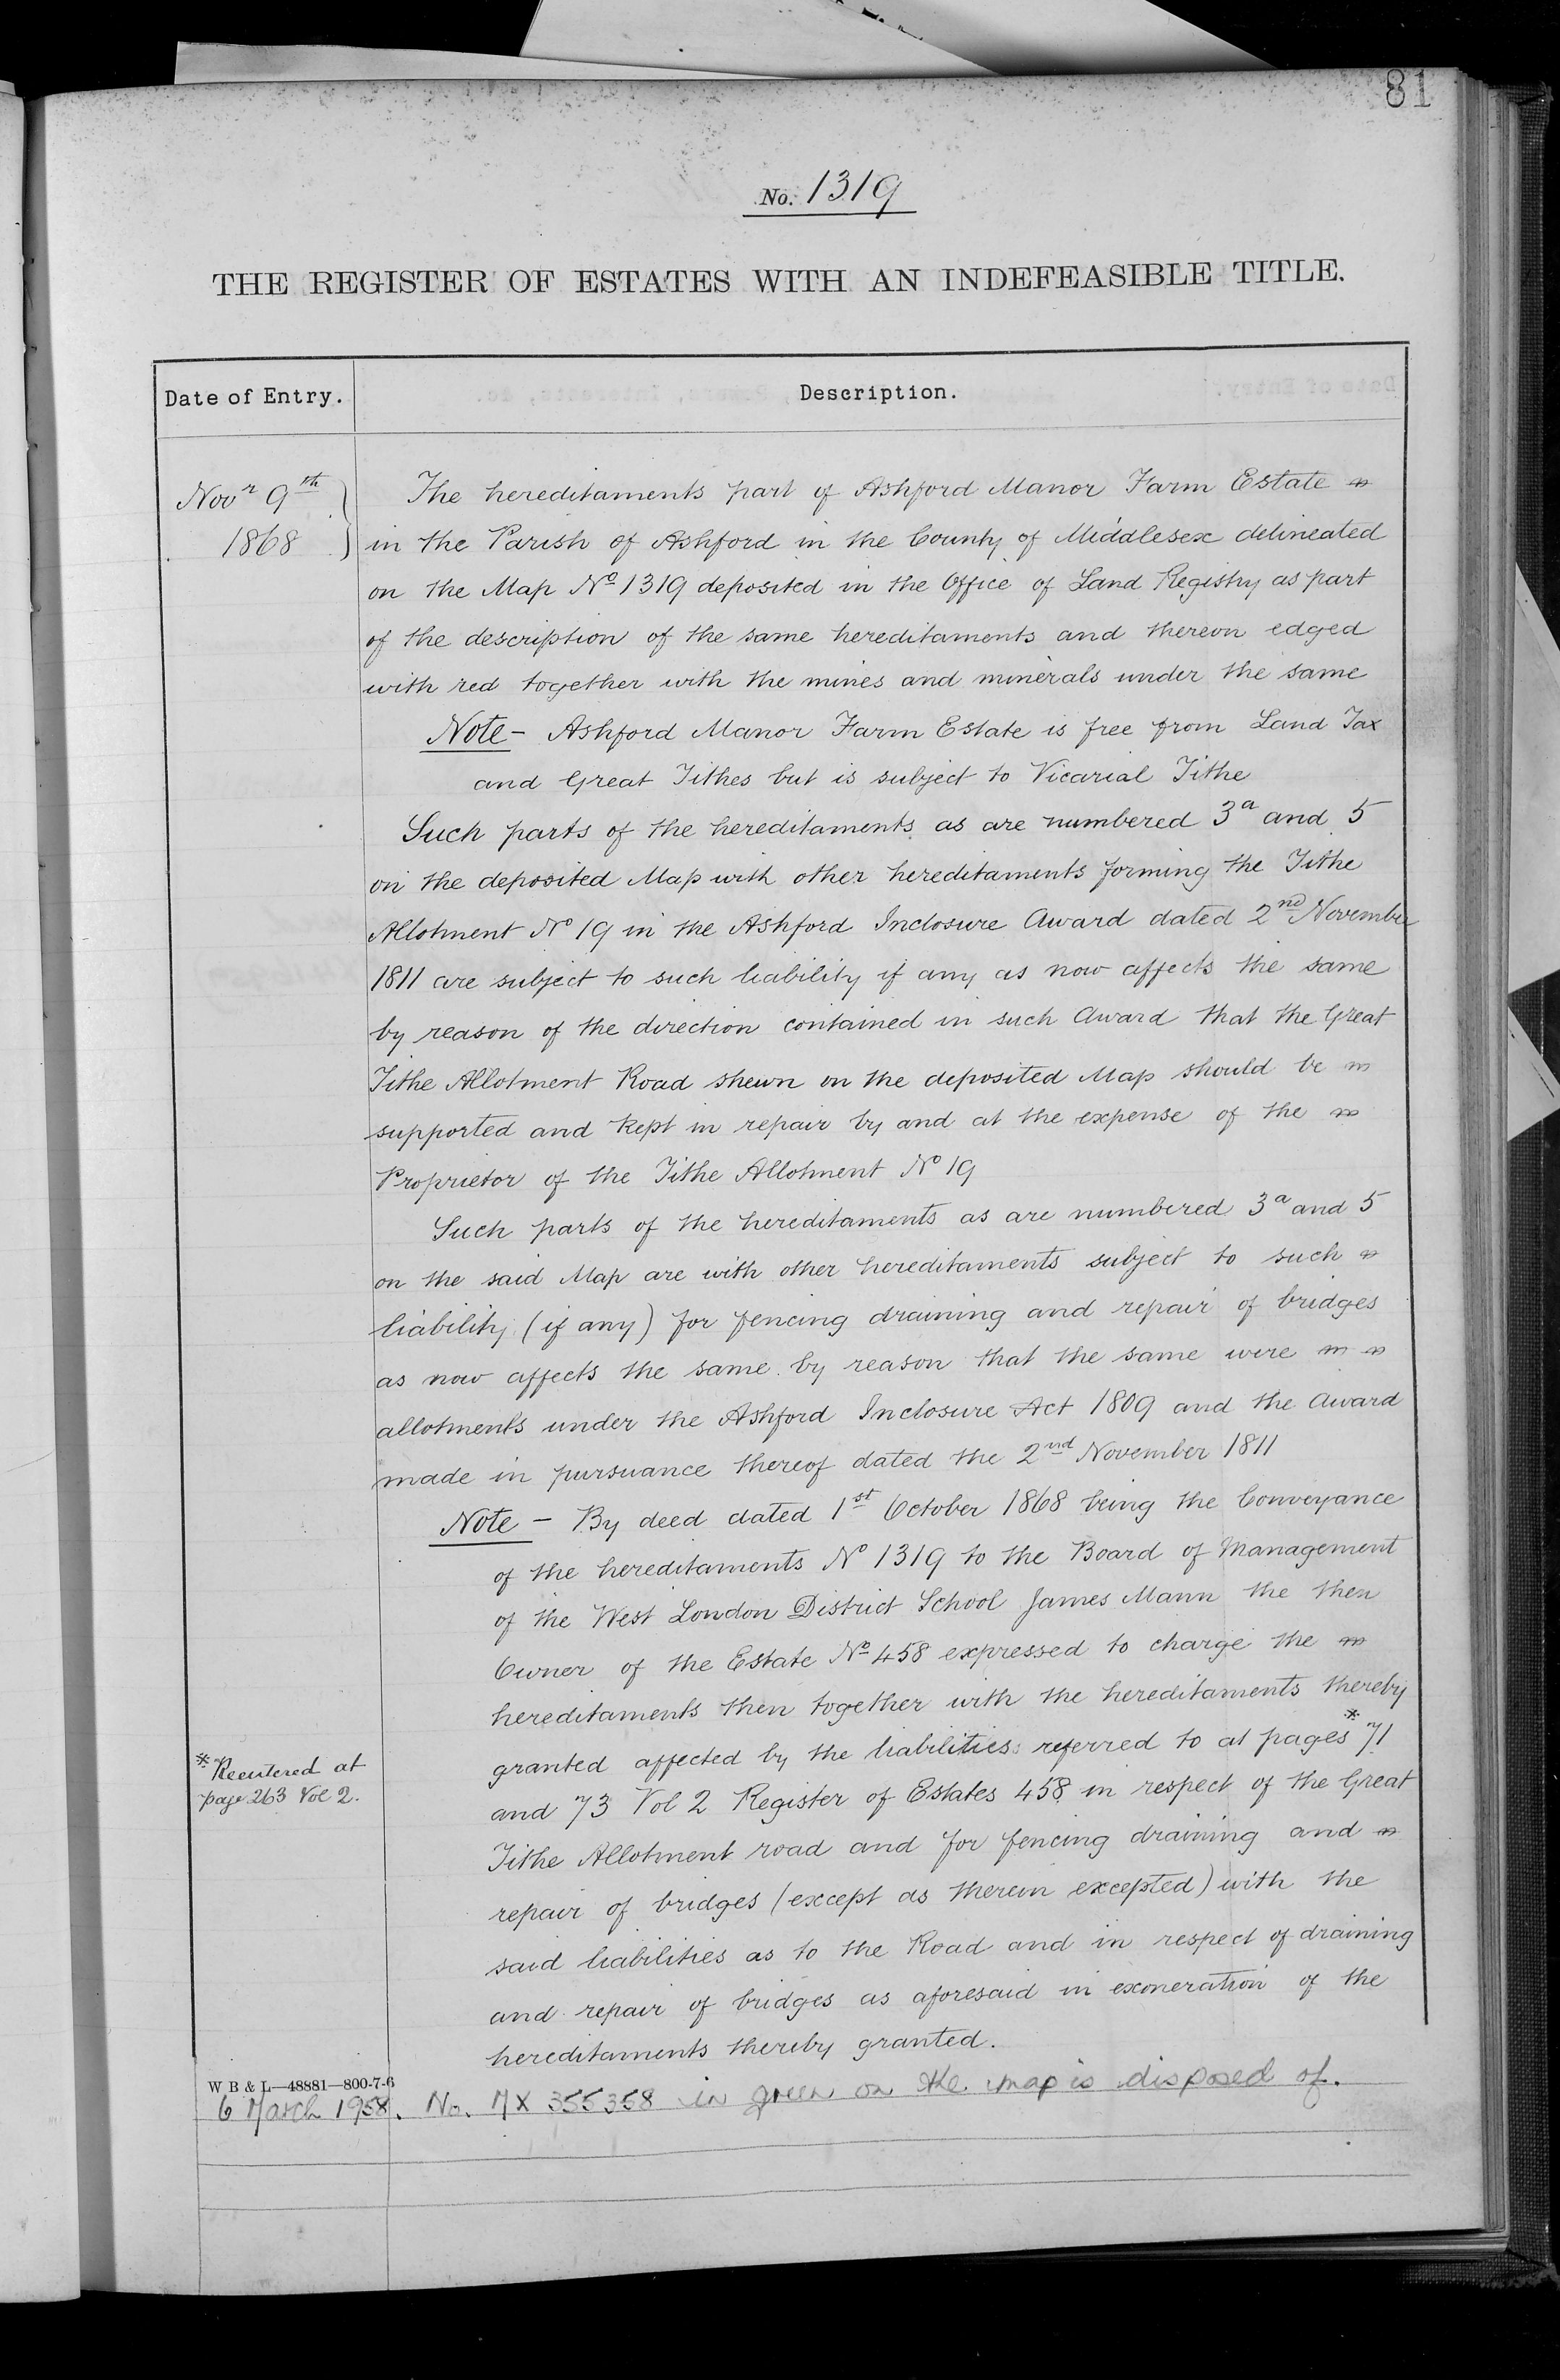 81
No. 1319
THE REGISTER OF ESTATES WITH AN INDEFEASIBLE TITLE.
Date of Entry.
Description.
Novr 9th
1868
The hereditaments part of Ashford Manor Farm Estate
in the Parish of Ashford in the County of Middlesex delineated
on the Map No 1319 deposited in the Office of Land Registry as part
of the description of the same hereditaments and thereon edged
with red together with the mines and minerals under the same
Note - Ashford Manor Farm Estate is free from Land Tax
and Great Tithes but is subject to Vicarial Tithe
Such parts of the hereditaments as are numbered 3a and 5
on the deposited Map with other hereditaments forming the Tithe
Allotment No 19 in the Ashford Inclosure Award dated 2nd November
1811 are subject to such liability if any as now affects the same
by reason of the direction contained in such Award that the Great
Tithe Allotment Road shewn on the deposited Map should be
supported and kept in repair by and at the expense of the
Proprietor of the Tithe Allotment No 19
Such parts of the hereditaments as are numbered 3a and 5
on the said Map are with other hereditaments subject to such
liability (if any) for fencing draining and repair of bridges
as now affects the same by reason that the same were
allotments under the Ashford Inclosure Act 1809 and the Award
made in pursuance thereof dated the 2nd November 1811
Note - By deed dated 1st October 1868 being the Conveyance
of the hereditaments No 1319 to the Board of Management
of the West London District School James Mann the then
Owner of the Estate No 458 expressed to charge the
hereditaments then together with the hereditaments thereby
granted affected by the liabilities referred to at pages* 71
and 73 Vol 2 Register of Estates 458 in respect of the Great
Tithe Allotment road and for fencing draining and
repair of bridges (except as therein excepted) with the
said liabilities as to the Road and in respect of draining
and repair of bridges as aforesaid in exoneration of the
hereditaments thereby granted.
* Reentered at
page 263 Vol 2.
W B & L—48881—800-7-6
6 March 1958. No. MX 355358 in green on the map is disposed of.